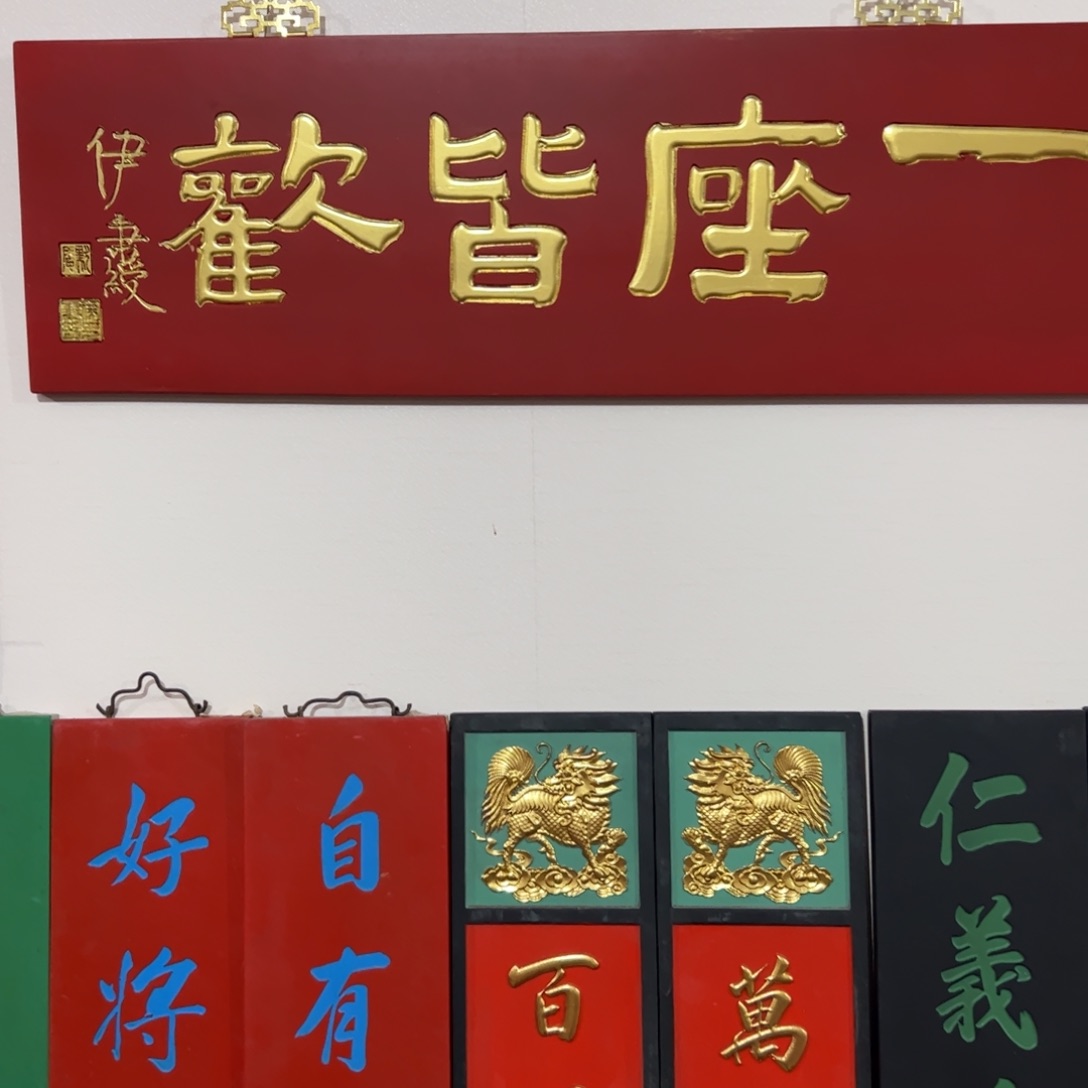 一座皆歡
伊秉綬
仁義
萬
百
自有
好將